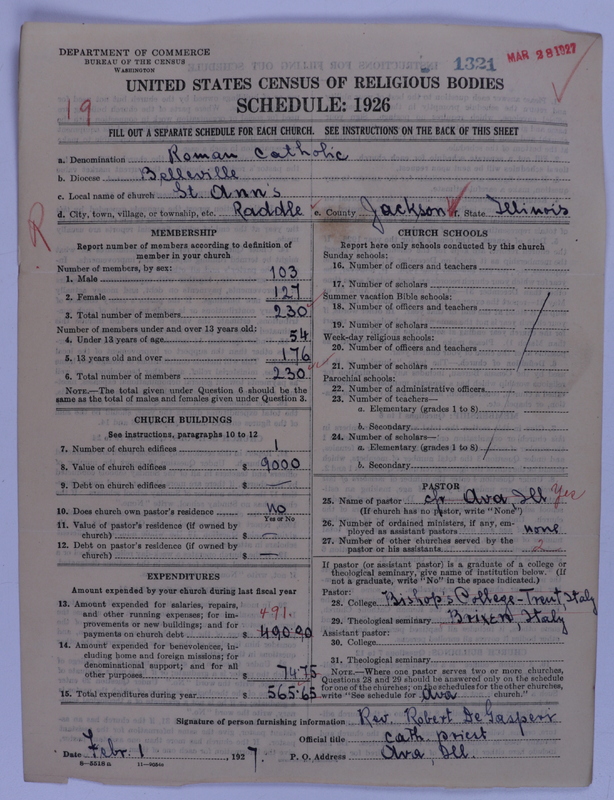 DEPARTMENT OF COMMERCE
BUREAU OF THE CENSUS
WASHINGTON
1321
MAR 28 1927
UNITED STATES CENSUS OF RELIGIOUS BODIES
SCHEDULE: 1926
19
FILL OUT A SEPARATE SCHEDULE FOR EACH CHURCH. SEE INSTRUCTIONS ON THE BACK OF THIS SHEET
a. Denomination Roman Catholic
b. Diocese Belleville
c. Local name of church St Ann's
d. City, town, village, or township, etc. Raddle e. County Jackson f. State Illinois
R
MEMBERSHIP
Report number of members according to definition of member in your church
Number of members, by sex:
1. Male 103
2. Female 127
3. Total number of members 230
Number of members under and over 13 years old:
4. Under 13 years of age 54
5. 13 years old and over 176
6. Total number of members 230
NOTE.—The total given under Question 6 should be the
same as the total of males and females given under Question 3.
CHURCH BUILDINGS
See instructions, paragraphs 10 to 12
7. Number of church edifices 1
8. Value of church edifices $ 9000
9. Debt on church edifices $ —
10. Does church own pastor's residence no
Yes or No
11. Value of pastor's residence (if owned by
church) $ —
12. Debt on pastor's residence (if owned by
church) $ —
EXPENDITURES
Amount expended by your church during last fiscal year
13. Amount expended for salaries, repairs,
and other running expenses; for im-
provements or new buildings; and for 491.
payments on church debt $ 490.90
14. Amount expended for benevolences, in-
cluding home and foreign missions; for
denominational support; and for all
other purposes $ 74.75
15. Total expenditures during year $ 565.65
CHURCH SCHOOLS
Report here only schools conducted by this church
Sunday schools:
16. Number of officers and teachers
17. Number of scholars
Summer vacation Bible schools:
18. Number of officers and teachers
19. Number of scholars
Week-day religious schools:
20. Number of officers and teachers
21. Number of scholars
Parochial schools:
22. Number of administrative officers
23. Number of teachers—
a. Elementary (grades 1 to 8)
b. Secondary
24. Number of scholars—
a. Elementary (grades 1 to 8)
b. Secondary
PASTOR
25. Name of pastor c/r Ava Ill Yes
(If church has no pastor, write "None")
26. Number of ordained ministers, if any, em-
ployed as assistant pastors none
27. Number of other churches served by the
pastor or his assistants 2
If pastor (or assistant pastor) is a graduate of a college or
theological seminary, give name of institution below. (If
not a graduate, write "No" in the space indicated.)
Pastor:
28. College Bishop's College-Trent, Italy
29. Theological seminary Brixen, Italy
Assistant pastor:
30. College
31. Theological seminary
NOTE.—Where one pastor serves two or more churches,
Questions 28 and 29 should be answered only on the schedule
for one of the churches; on the schedules for the other churches,
write "See schedule for Ava church."
Signature of person furnishing information Rev. Robert DeGasperi
Official title cath. priest
Date Febr. 1, 1927. P. O. Address Ava, Ill.
8—5518 a